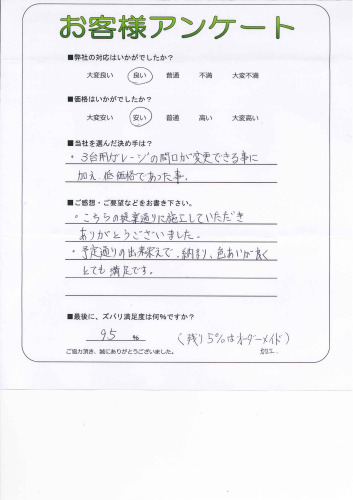 お客様アンケート
■弊社の対応はいかがでしたか？
大変良い 良い 普通 不満 大変不満
■価格はいかがでしたか？
大変安い 安い 普通 高い 大変高い
■当社を選んだ決め手は？
・3台用ガレージの間口が変更できる事に
加え、低価格であった事。
■ご感想・ご要望などをお書き下さい。
・こちらの提案通りに施工していただき
ありがとうございました。
・予定通りの出来栄えで、納まり、色あいが良く
とても満足です。
■最後に、ズバリ満足度は何%ですか？
95 % (残り5%はオーダーメイド)
加工.
ご協力頂き、誠にありがとうございました。